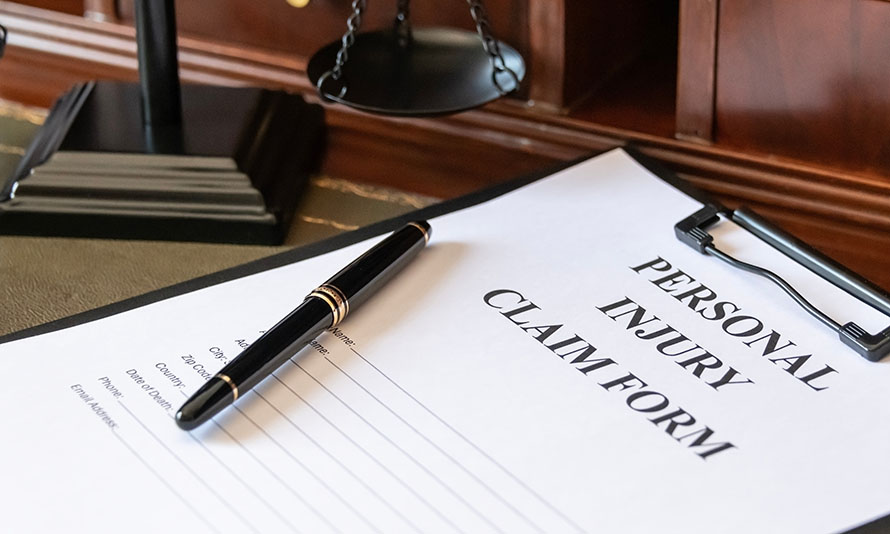 PERSONAL
INJURY
CLAIM FORM
Name:
City:
Zip Code
Country:
Date of Death:
Phone:
Email Address: